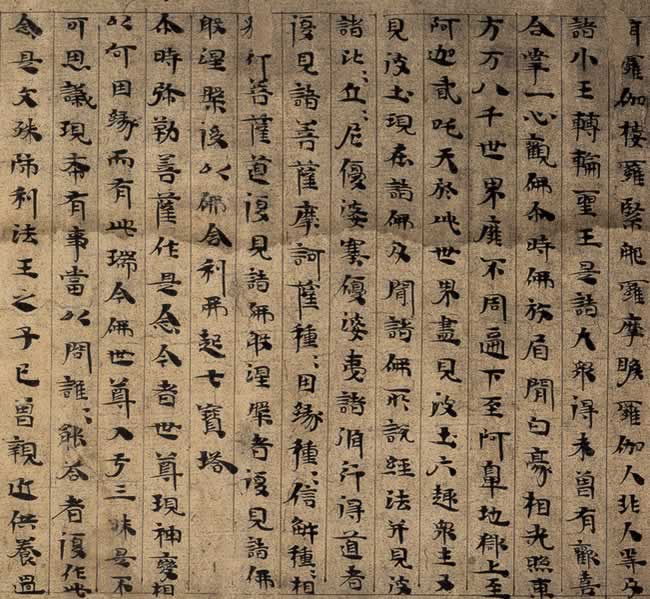 羅伽樓羅緊那羅摩睺羅伽人非人等及
諸小王轉輪聖王是諸大衆得未曾有歡喜
合掌一心觀佛尒時佛放眉間白豪相光照東
方万八千世界靡不周遍下至阿鼻地獄上至
阿迦貳吒天於此世界盡見彼土六趣衆生又
見彼土現在諸佛及聞諸佛所說經法并見彼
諸比〻丘〻尼優婆塞優婆夷諸脩行得道者
復見諸菩薩摩訶薩種〻因緣種〻信解種〻相
皃行菩薩道復見諸佛般涅槃者復見諸佛
般涅槃後以佛舍利而起七寶塔
尒時弥勒菩薩作是念今者世尊現神變相
以何因緣而有此瑞今佛世尊入于三昧是不
可思議現希有事當以問誰〻能荅者復作此
念是文殊師利法王之子已曾親近供養過